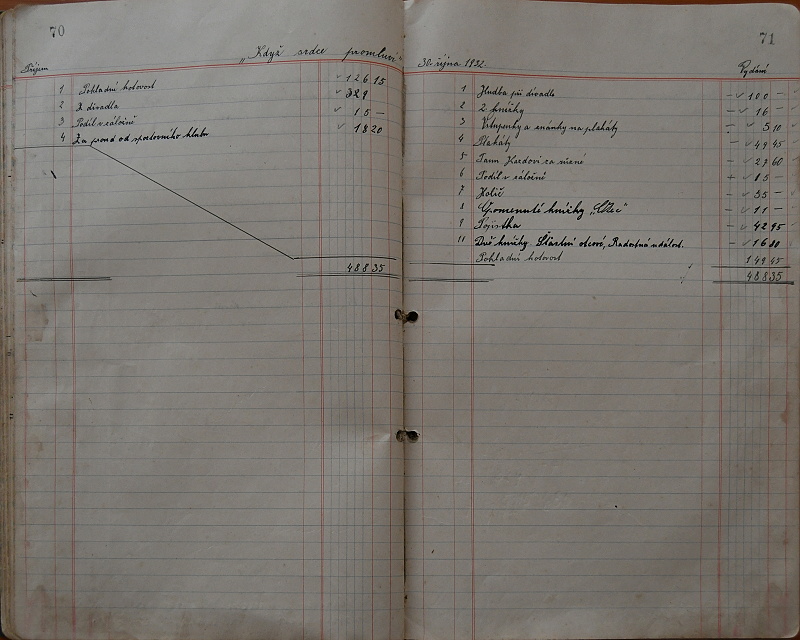 70
„Když srdce promluví“
Příjem
1 Pokladní hotovost 126 15
2 Z divadla 329
3 Podíl v záložně 15 —
4 Za prond od sportovního klubu 18 20
488 35
71
30. října 1932.
Vydání
1 Hudba při divadle — 100 —
2 2 knížky — 16 —
3 Vstupenky a známky na plakáty — 5 10
4 Plakáty — 49 45
5 27 60
6 Podíl v záložně 15 —
7 Holič — 35 —
8 knížky — 11 —
9 Pojistka — 42 95
11 Dvě knížky Šťastní otcové, Radostná událost. — 16 80
Pokladní hotovost 149 45
488 35